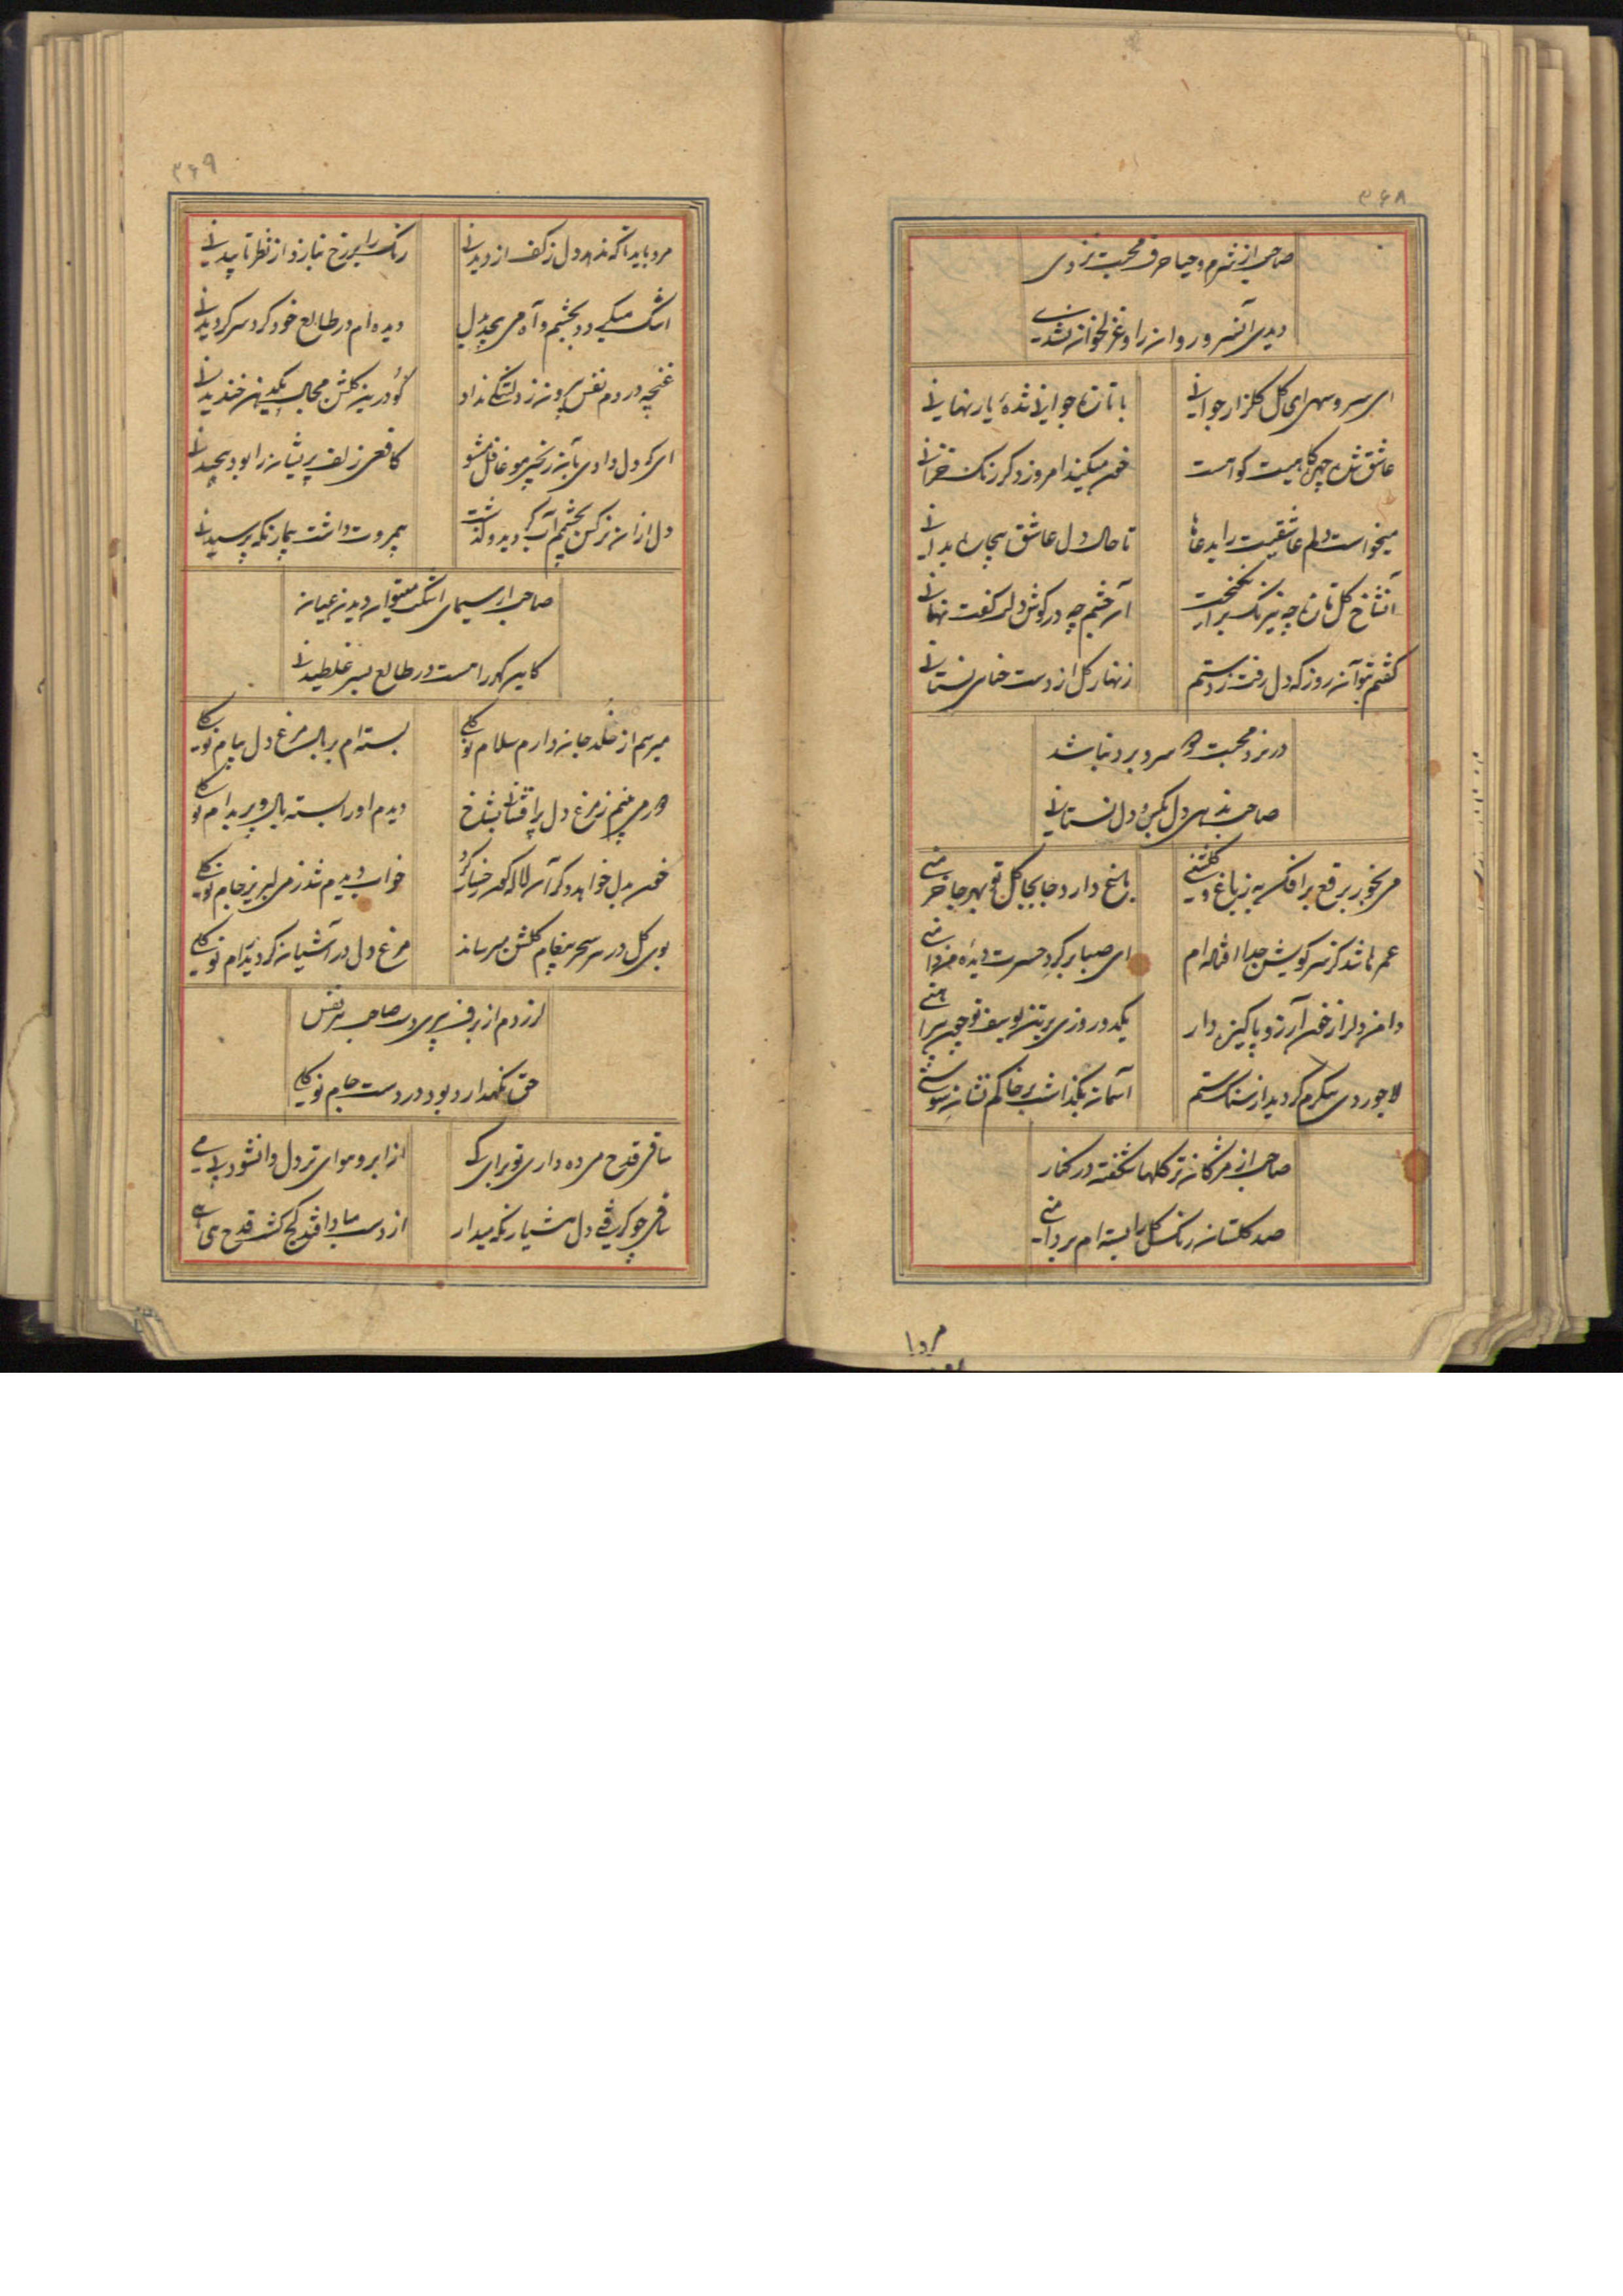 ۳۶۸
صاحب از شرم و حیا حرف محبت نزدی
دیدی آن سرو روان را و غزلخوان نشدی
ای سرو سهی ای گل گلزار جوانی
با تازه جوانان شدهٔ یار نهانی
عاشق شدهٔ
خون میکند امروز دگر رنگ خزانی
میخواست دلم عاشقیت را بدعاها
تا حال دل عاشق بیچاره بدانی
آن شاخ گل تازه چه نیرنگ برانگیخت
آن چشم چه در گوش دلم گفت نهانی
گفتم بتو آن روز که دل رفت ز دستم
زنهار گل از دست خسان نستانی
در نرد محبت همه سر در برد نباشد
صاحب ندهی دل بکس و دل نستانی
می بخور برقع برافکن به ز باغ و گلشنی
باغ دارد جابجا گل تو بهر جا خرمنی
عمرها شد کز سر کویش جدا افتاده‌ام
ای صبا بر گرد حسرت دیده‌ام زن دامنی
دامن دل را از خون آرزو پاکیزه دار
یکدو روزی بر تن یوسف تو هم پیراهنی
لاجوردی پیکرم گردید از سنگ ستم
آسمان نگذاشت بر خاکم نشان سوسنی
صاحب از مژگان تر گلها شکفته در کنار
صد گلستان رنگ گل را بسته‌ام بر دامنی
مرد با
۳۶۹
مرد باید تا که ندهد دل ز کف از دیدنی
رنگ را بر رخ نبازد از نظر تابیدنی
اشک میگردد بچشم و آه می‌پیچد بدل
دیده‌ام در طالع خود گرد سر گردیدنی
غنچه در دم نفس بیرون ز دلتنگی نداد
کو درین گلشن مجال یکدهن خندیدنی
ای که دل دادی به آن زنجیر مو غافل مشو
کافعی زلف پریشان را بود پیچیدنی
دل از آن نرگس بچشمم آب گردید و گذشت
بیمروت داشت بیمار نگه پرسیدنی
صاحب از سیمای اشکت میتوان دیدن عیان
کاین گهر را هست در طالع بسی غلطیدنی
میرسم از خلد جان دارم سلام نوگلی
بسته‌ام بر بال مرغ دل پیام نوگلی
دیدم او را بسته بال و پر بدام نوگلی
خون بدل خواهد دگر آن لاله‌گون رخسار کرد
خواب دیدم شد ز می لبریز جام نوگلی
بوی گل در سر سحر پیغام گلشن میرساند
مرغ دل در آشیان گردید رام نوگلی
لرزدم از برف پیری دست صاحب هر نفس
حق نگهدارد بود در دست جام نوگلی
ساقی قدح می ده داری تو برای کی
از ابر و هوای تر دل وا نشود بی می
ساقی چو گرفتی دل هشیار نگه میدار
از دست مبادا فتد کج کشت قدح هی هی